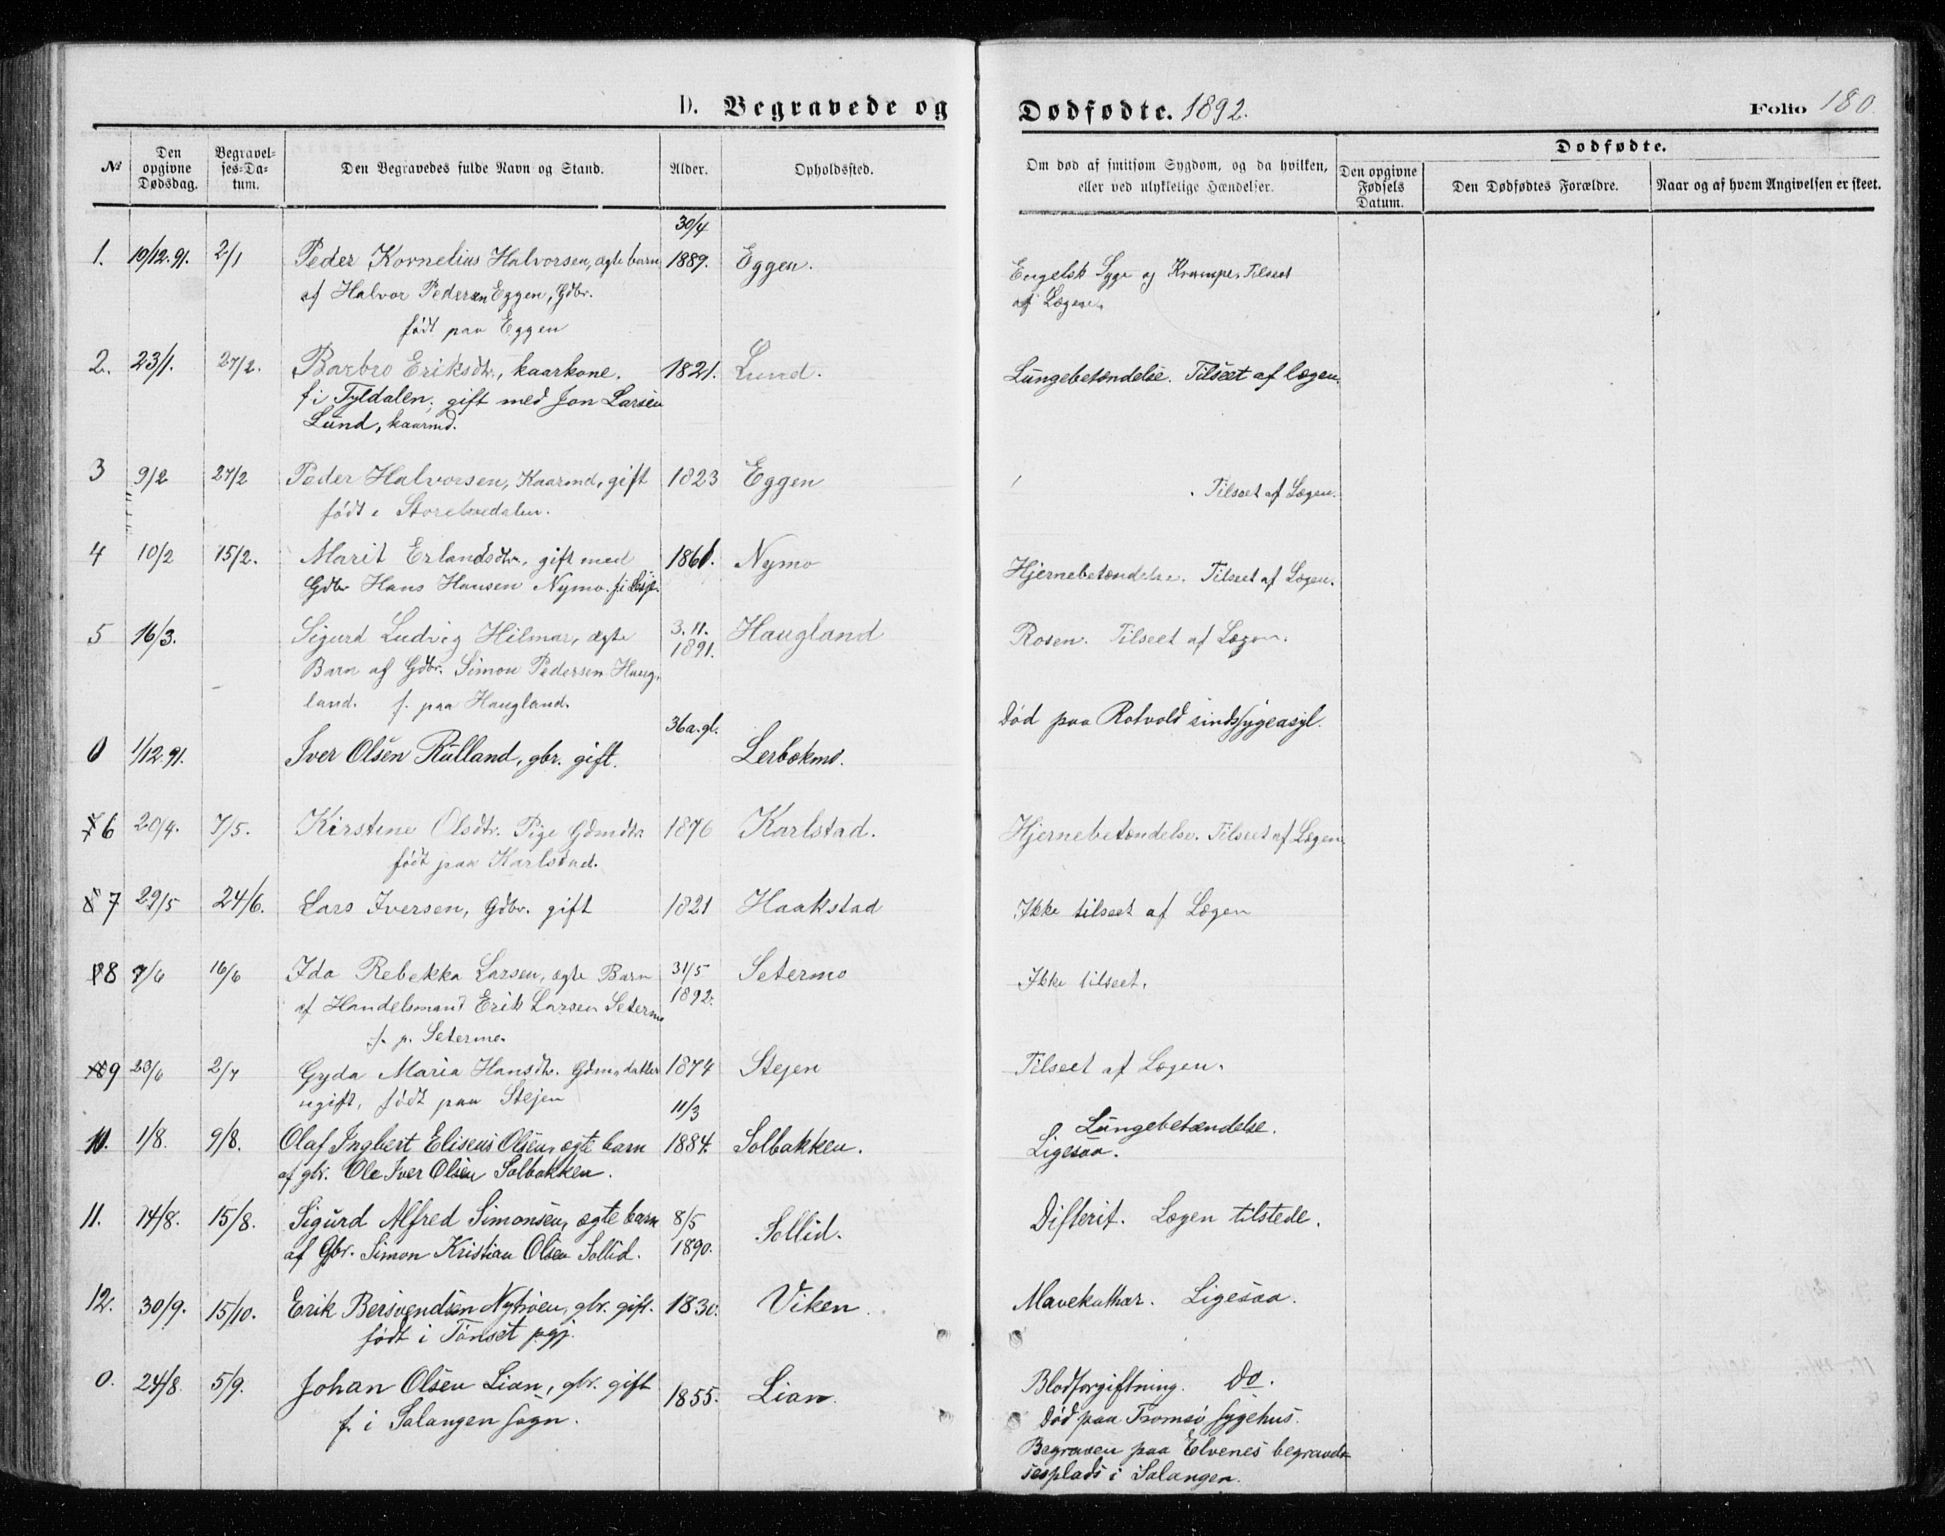 D. Begravede og Dødfødte. 1892. Folio 180.
№ Den opgivne Dødsdag. Begravelses-Datum. Den Begravedes fulde Navn og Stand. Alder. Opholdssted. Om død af smitsom Sygdom, og da hvilken, eller ved ulykkelige Hændelser. Dødfødte. Den opgivne Fødsels Datum. Den Dødfødtes Forældre. Naar og af hvem Angivelsen er skeet.
30/4
1. 19/12.91. 2/1 Peder Kornelius Halvorsen, ægte barn 1889. Eggen. Engelsk Syge og Krampe. Tilseet
af Halvor Pedersen Eggen, Gdbr. af Lægen.
født paa Eggen
2. 23/1. 27/2. Barbro Eriksdtr., kaarkone. 1821. Lund. Lungebetændelse. Tilseet af lægen.
f. i Tyldalen; gift med Jon Larsen
Lund, kaarmd.
3 9/2 27/2 Peder Halvorsen, Kaarmd, gift 1823 Eggen . Tilseet af Lægen.
født i Storelvedalen.
4 10/2 15/2. Marit Erlandsdtr. gift med 1861. Nymo Hjernebetændelse. Tilseet af Lægen.
Gdbr Hans Hansen Nymo. f. i Lesje.
5 16/3. Sigurd Ludvig Hilmar, ægte 3.11. 1891. Haugland Rosen. Tilseet af Lægen.
Barn af Gdbr. Simon Pedersen Haug-
land. f. paa Haugland.
36 a. gl. Død paa Rotvold sindssygeasyl.
0 1/12.91. Iver Olsen Rulland, gbr. gift. Lerbekmo.
6 20/4. 7/5. Kirstine Olsdtr. Pige Gdmdtr 1876 Karlstad. Hjernebetændelse. Tilseet af Lægen.
født paa Karlstad.
7 29/5 24/6. Lars Iversen, Gdbr. gift 1821 Haakstad Ikke tilseet af Lægen
8 7/6 16/6 Ida Rebekka Larsen, ægte Barn 31/5 1892. Setermo Ikke tilseet.
af Handelsmand Erik Larsen Setermo
f. p. Setermo.
9 23/6 2/7 Gyda Maria Hansdtr. Gdmsdatter 1874 Stejen Tilseet af Lægen.
ugift, født paa Stejen
11/3 Lungebetændelse.
10. 1/8. 9/8. Olaf Ingbert Eliseus Olsen, ægte barn 1884. Solbakken. Ligesaa.
af gbr. Ole Iver Olsen Solbakken.
11. 14/8. 15/8. Sigurd Alfred Simonsen, ægte barn 8/5 1890. Sollid. Difterit. Lægen tilstede.
af Gbr. Simon Kristian Olsen Sollid.
12. 30/9. 15/10. Erik Bersvendsen Nytrøen, gbr. gift. 1830. Viken Mavekathar. Ligesaa.
født i Tønset pgj.
0. 24/8. 5/9. Johan Olsen Lian, gbr. gift 1855. Lian. Blodforgiftning. Do.
f. i Salangen sogn. Død paa Tromsø sygehus.
Begraven paa Elvenes begravel-
sesplads i Salangen.